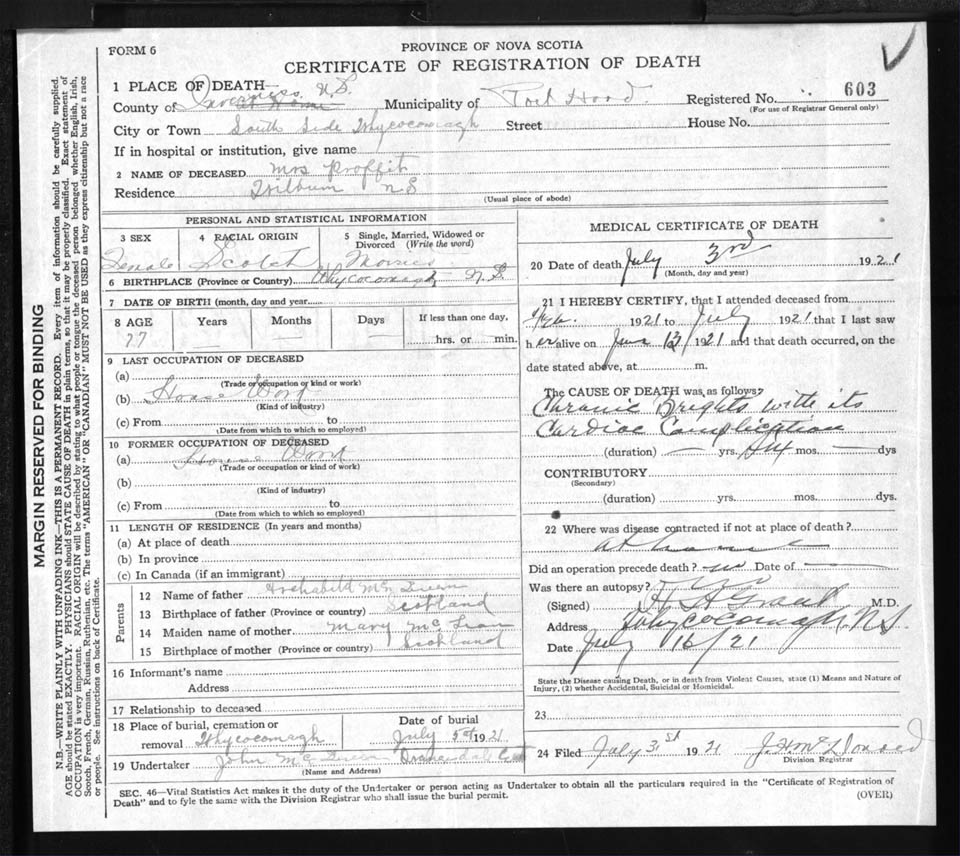 FORM 6
PROVINCE OF NOVA SCOTIA
CERTIFICATE OF REGISTRATION OF DEATH
603
1 PLACE OF DEATH
County of Inverness N.S. Municipality of Port Hood Registered No.
(For use of Registrar General only)
City or Town South Side Whycocomagh Street House No.
If in hospital or institution, give name
2 NAME OF DECEASED Mrs Proffit
Residence N S
(Usual place of abode)
MARGIN RESERVED FOR BINDING
N.B.—WRITE PLAINLY WITH UNFADING INK—THIS IS A PERMANENT RECORD. Every item of information should be carefully supplied.
AGE should be stated EXACTLY. PHYSICIANS should STATE CAUSE OF DEATH in plain terms, so that it may be properly classified. Exact statement of
OCCUPATION is very important. RACIAL ORIGIN will be described by stating to what people or tongue the deceased person belonged whether English, Irish,
Scotch, French, German, Russian, Ruthenian, etc. The terms "AMERICAN" OR "CANADIAN" MUST NOT BE USED as they express citizenship but not a race
or people. See instructions on back of Certificate.
PERSONAL AND STATISTICAL INFORMATION
3 SEX
4 RACIAL ORIGIN
5 Single, Married, Widowed or
Divorced (Write the word)
Female Scotch
6 BIRTHPLACE (Province or Country) Whycocomagh N.S.
7 DATE OF BIRTH (month, day and year
8 AGE Years Months Days If less than one day,
77 hrs. or min.
9 LAST OCCUPATION OF DECEASED
(a)
(Trade or occupation or kind or work)
(b) House Work
(Kind of industry)
(c) From to
(Date from which to which so employed)
10 FORMER OCCUPATION OF DECEASED
(a) House Work
(Trade or occupation or kind of work)
(b)
(Kind of industry)
(c) From to
(Date from which to which so employed)
11 LENGTH OF RESIDENCE (In years and months)
(a) At place of death
(b) In province
(c) In Canada (if an immigrant)
Parents
12 Name of father Archabild Mc Queen
13 Birthplace of father (Province or country) Scotland
14 Maiden name of mother Mary McLean
15 Birthplace of mother (Province or country) Scotland
16 Informant's name
Address
17 Relationship to deceased
18 Place of burial, cremation or
removal Whycocomagh
Date of burial
July 5th 1921
19 Undertaker John McQueen
(Name and Address)
MEDICAL CERTIFICATE OF DEATH
20 Date of death July 3rd 1921
(Month, day and year)
21 I HEREBY CERTIFY, that I attended deceased from
1921 to July 1921 that I last saw
h er alive on June 12/ 1921 and that death occurred, on the
date stated above, at m.
The CAUSE OF DEATH was as follows:
Chronic Brights with its
Cardiac Complication
(duration) — yrs. Six mos. — dys
CONTRIBUTORY
(Secondary)
(duration) yrs. mos. dys.
22 Where was disease contracted if not at place of death?
at home
Did an operation precede death? no Date of —
Was there an autopsy? no
(Signed) H A Grant M.D.
Address Whycocomagh, N.S.
Date July 16/21
State the Disease causing Death, or in death from Violent Causes, state (1) Means and Nature of
Injury, (2) whether Accidental, Suicidal or Homicidal.
23
24 Filed July 31st 1921 J. H. McDonald
Division Registrar
SEC. 46—Vital Statistics Act makes it the duty of the Undertaker or person acting as Undertaker to obtain all the particulars required in the "Certificate of Registration of
Death" and to fyle the same with the Division Registrar who shall issue the burial permit.
(OVER)